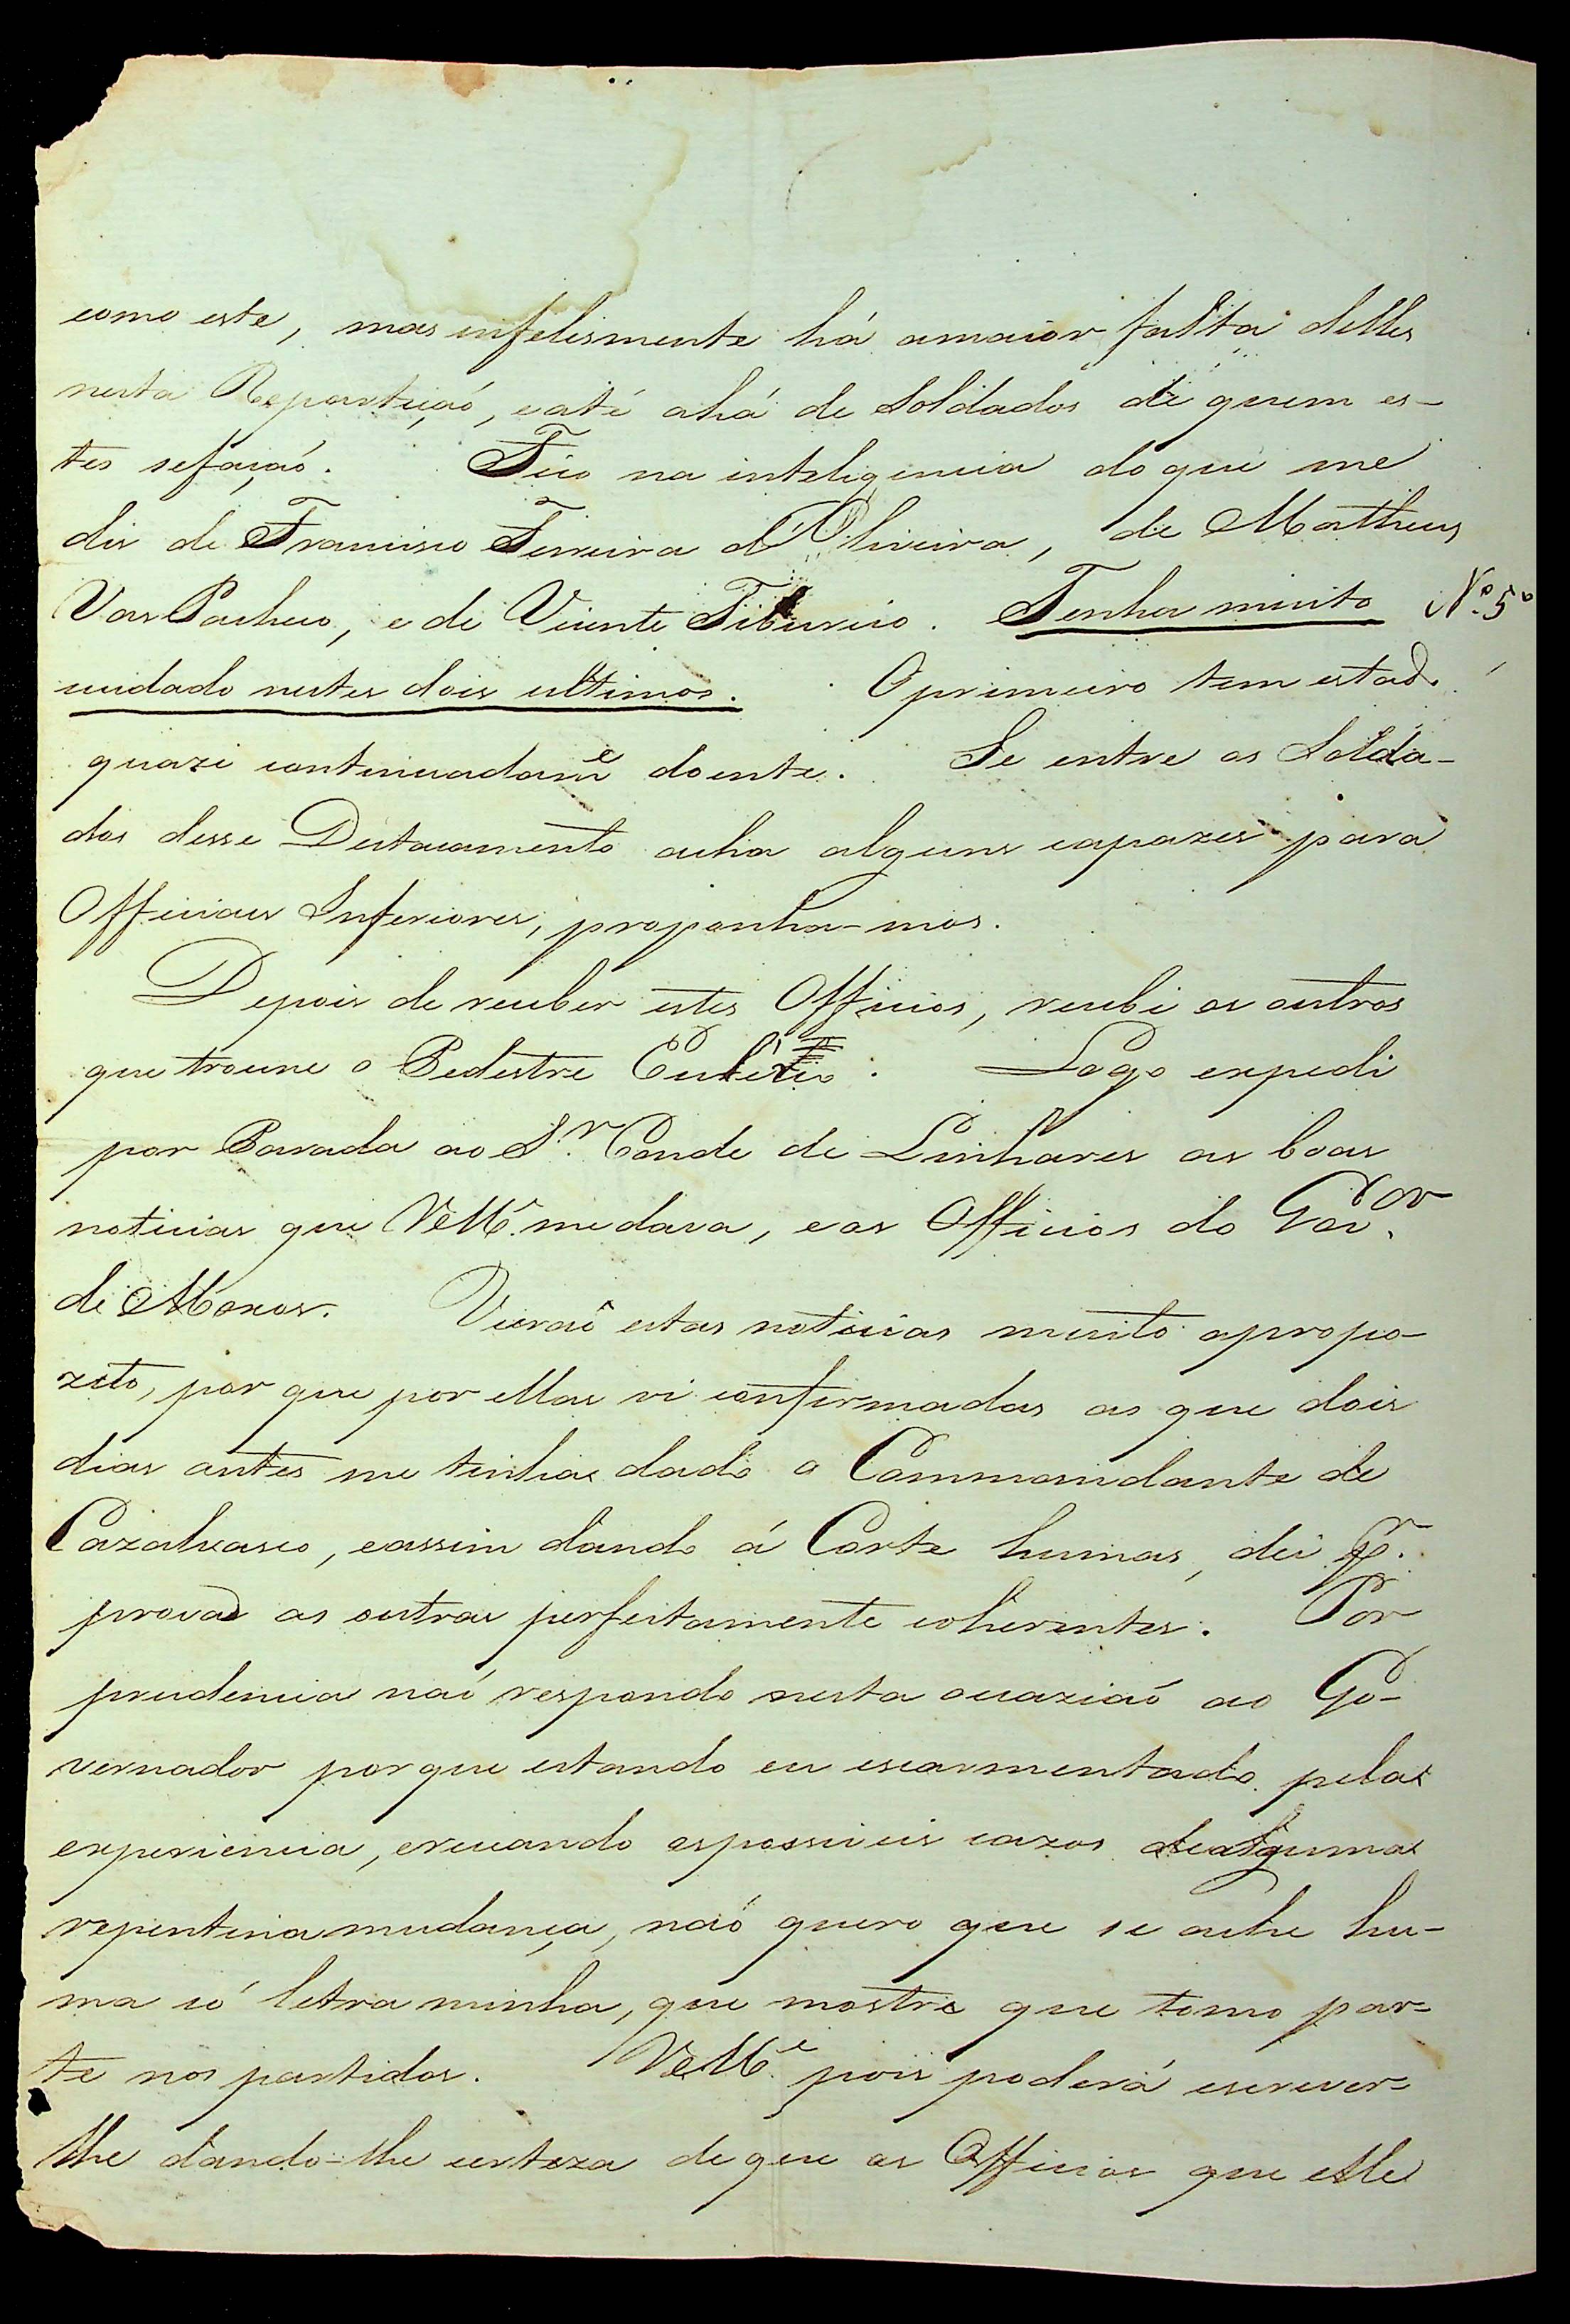 como este, mas infelismente há amaior falta delles
nesta Repartiçaó, eaté ahá de Soldados de quem es-
tes sefaçaó. Fico na inteligencia doque me
diz de Francisco Ferreira d'Oliveira, de Matheus
Vas Pacheco, e de Vicente Tiburcio. Tenha muito Nº 5º
cuidado nestes dois ultimos. Oprimeiro tem estado
quazi continuadam.e doente. Se entre os Solda-
dos desse Destacamento acha alguns capazes para
Officiaes Inferiores, proponha-mos.
Depois de receber estes Officios, recebi os outros
que trouxe o Pedestre. Logo expedi
por Parada ao S.r Conde de Linhares as boas
noticias que VeM.ce medava, eos Officios do Gov.or
de Moxos. Vieraõ estas noticias muito apropo-
zito, por que por ellas vi confirmadas as que dois
dias antes me tinha dado o Commandante de
Cazalvasco, eassim dando á Corte humas, dei p.r
provas as outras perfeitamente coherentes. Por
prudencia naó respondo nesta occaziaó ao Go-
vernador porque estando eu escarmentado pela
experiencia, erecciando ospossiveis cazos dealguma
repentina mudança, naó quero que se ache hu-
ma só letra minha, que mostre que tomo par-
te nos partidos. VeM.ce pois poderá escrever-
lhe dando-lhe certeza deque os Officios que elle